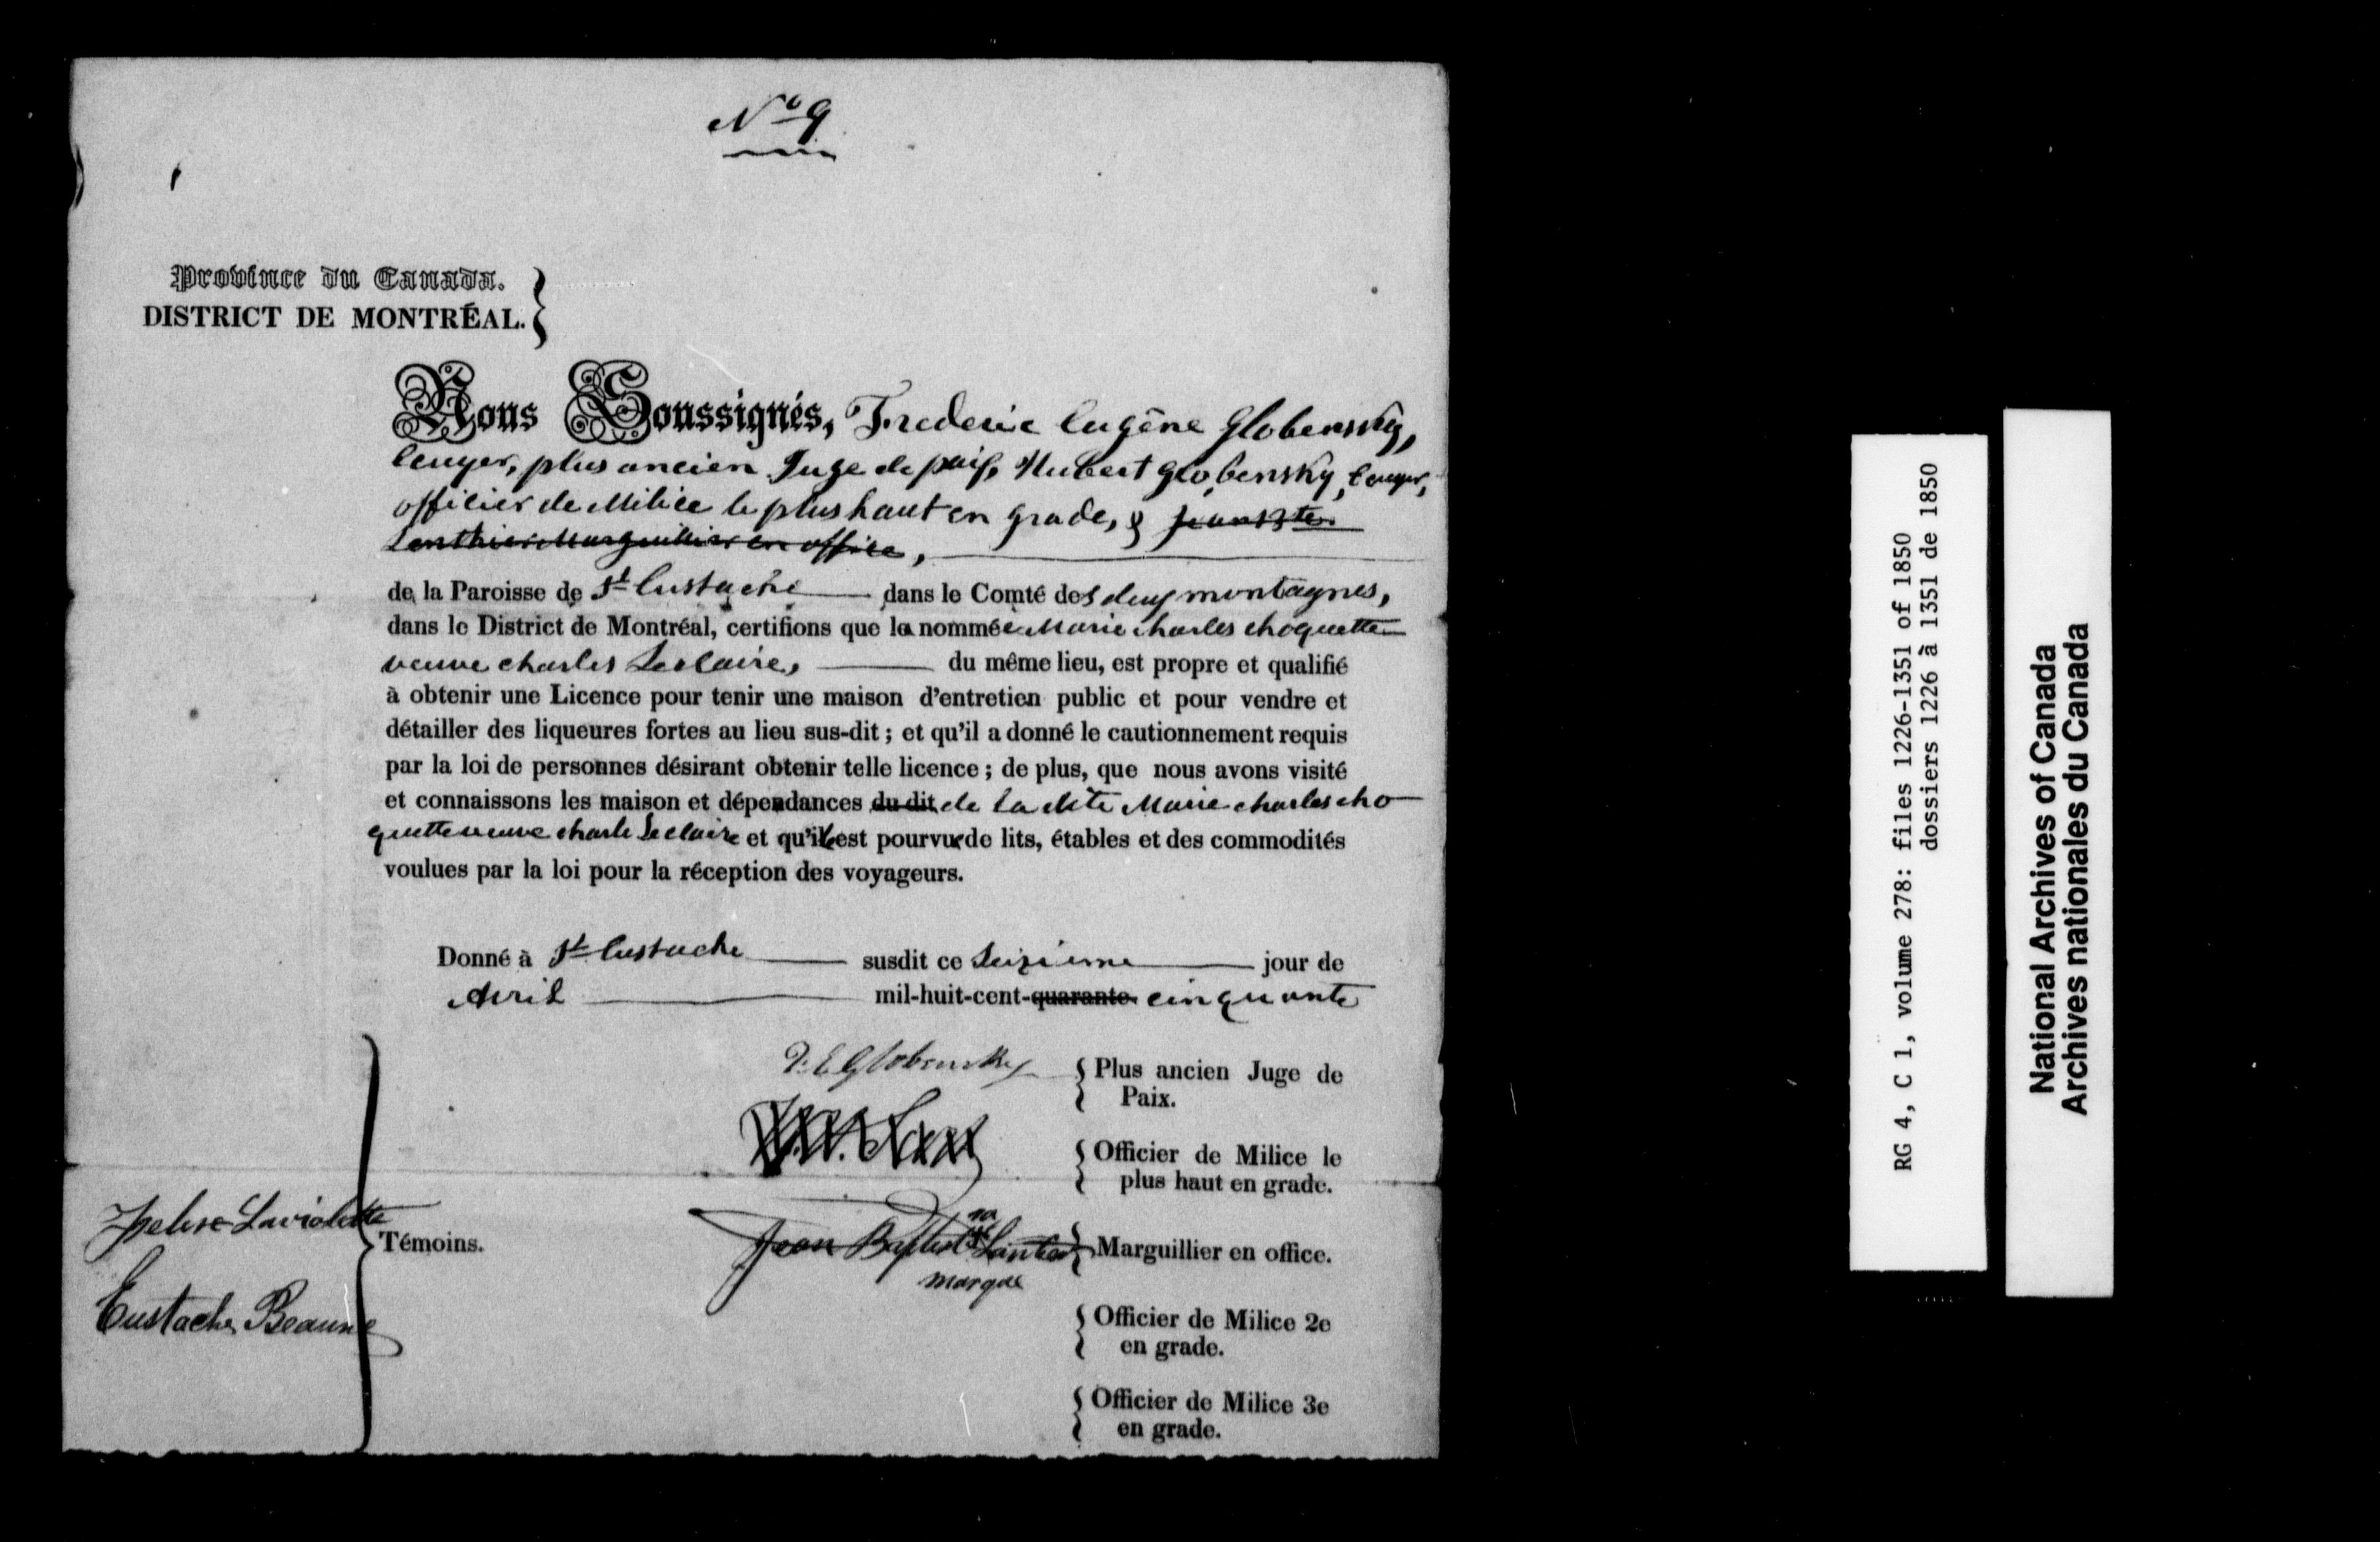 No 9
Province du Canada.
DISTRICT DE MONTRÉAL.
Nous Soussignés, Frederic Eugène Globensky,
Ecuyer, plus ancien Juge de paix, Hubert Globensky, Ecuyer,
officier de Milice le plus haut en grade, & Jean Bte
Lenthier Marguillier en office,
de la Paroisse de St Eustache dans le Comté des deux montagnes,
dans le District de Montréal, certifions que la nommée Marie charles choquette
veuve charles Leclaire, du même lieu, est propre et qualifié
à obtenir une Licence pour tenir une maison d'entretien public et pour vendre et
détailler des liqueures fortes au lieu sus-dit ; et qu'il a donné le cautionnement requis
par la loi de personnes désirant obtenir telle licence ; de plus, que nous avons visité
et connaissons les maison et dépendances du dit de la dite Marie charles cho
quette veuve charle Leclaire et qu'il est pourvue de lits, étables et des commodités
voulues par la loi pour la réception des voyageurs.
Donné à St Eustache susdit ce Seizième jour de
Avril mil-huit-cent-quarante cinquante
F. E. Globensky Plus ancien Juge de
Paix.
Officier de Milice le
plus haut en grade.
Jean Baptiste sa Lantier Marguillier en office.
marque
Officier de Milice 2e
en grade.
Officier de Milice 3e
en grade.
Laviolette
Témoins.
Eustache Beaune
RG 4, C 1, volume 278: files 1226-1351 of 1850
dossiers 1226 à 1351 de 1850
National Archives of Canada
Archives nationales du Canada